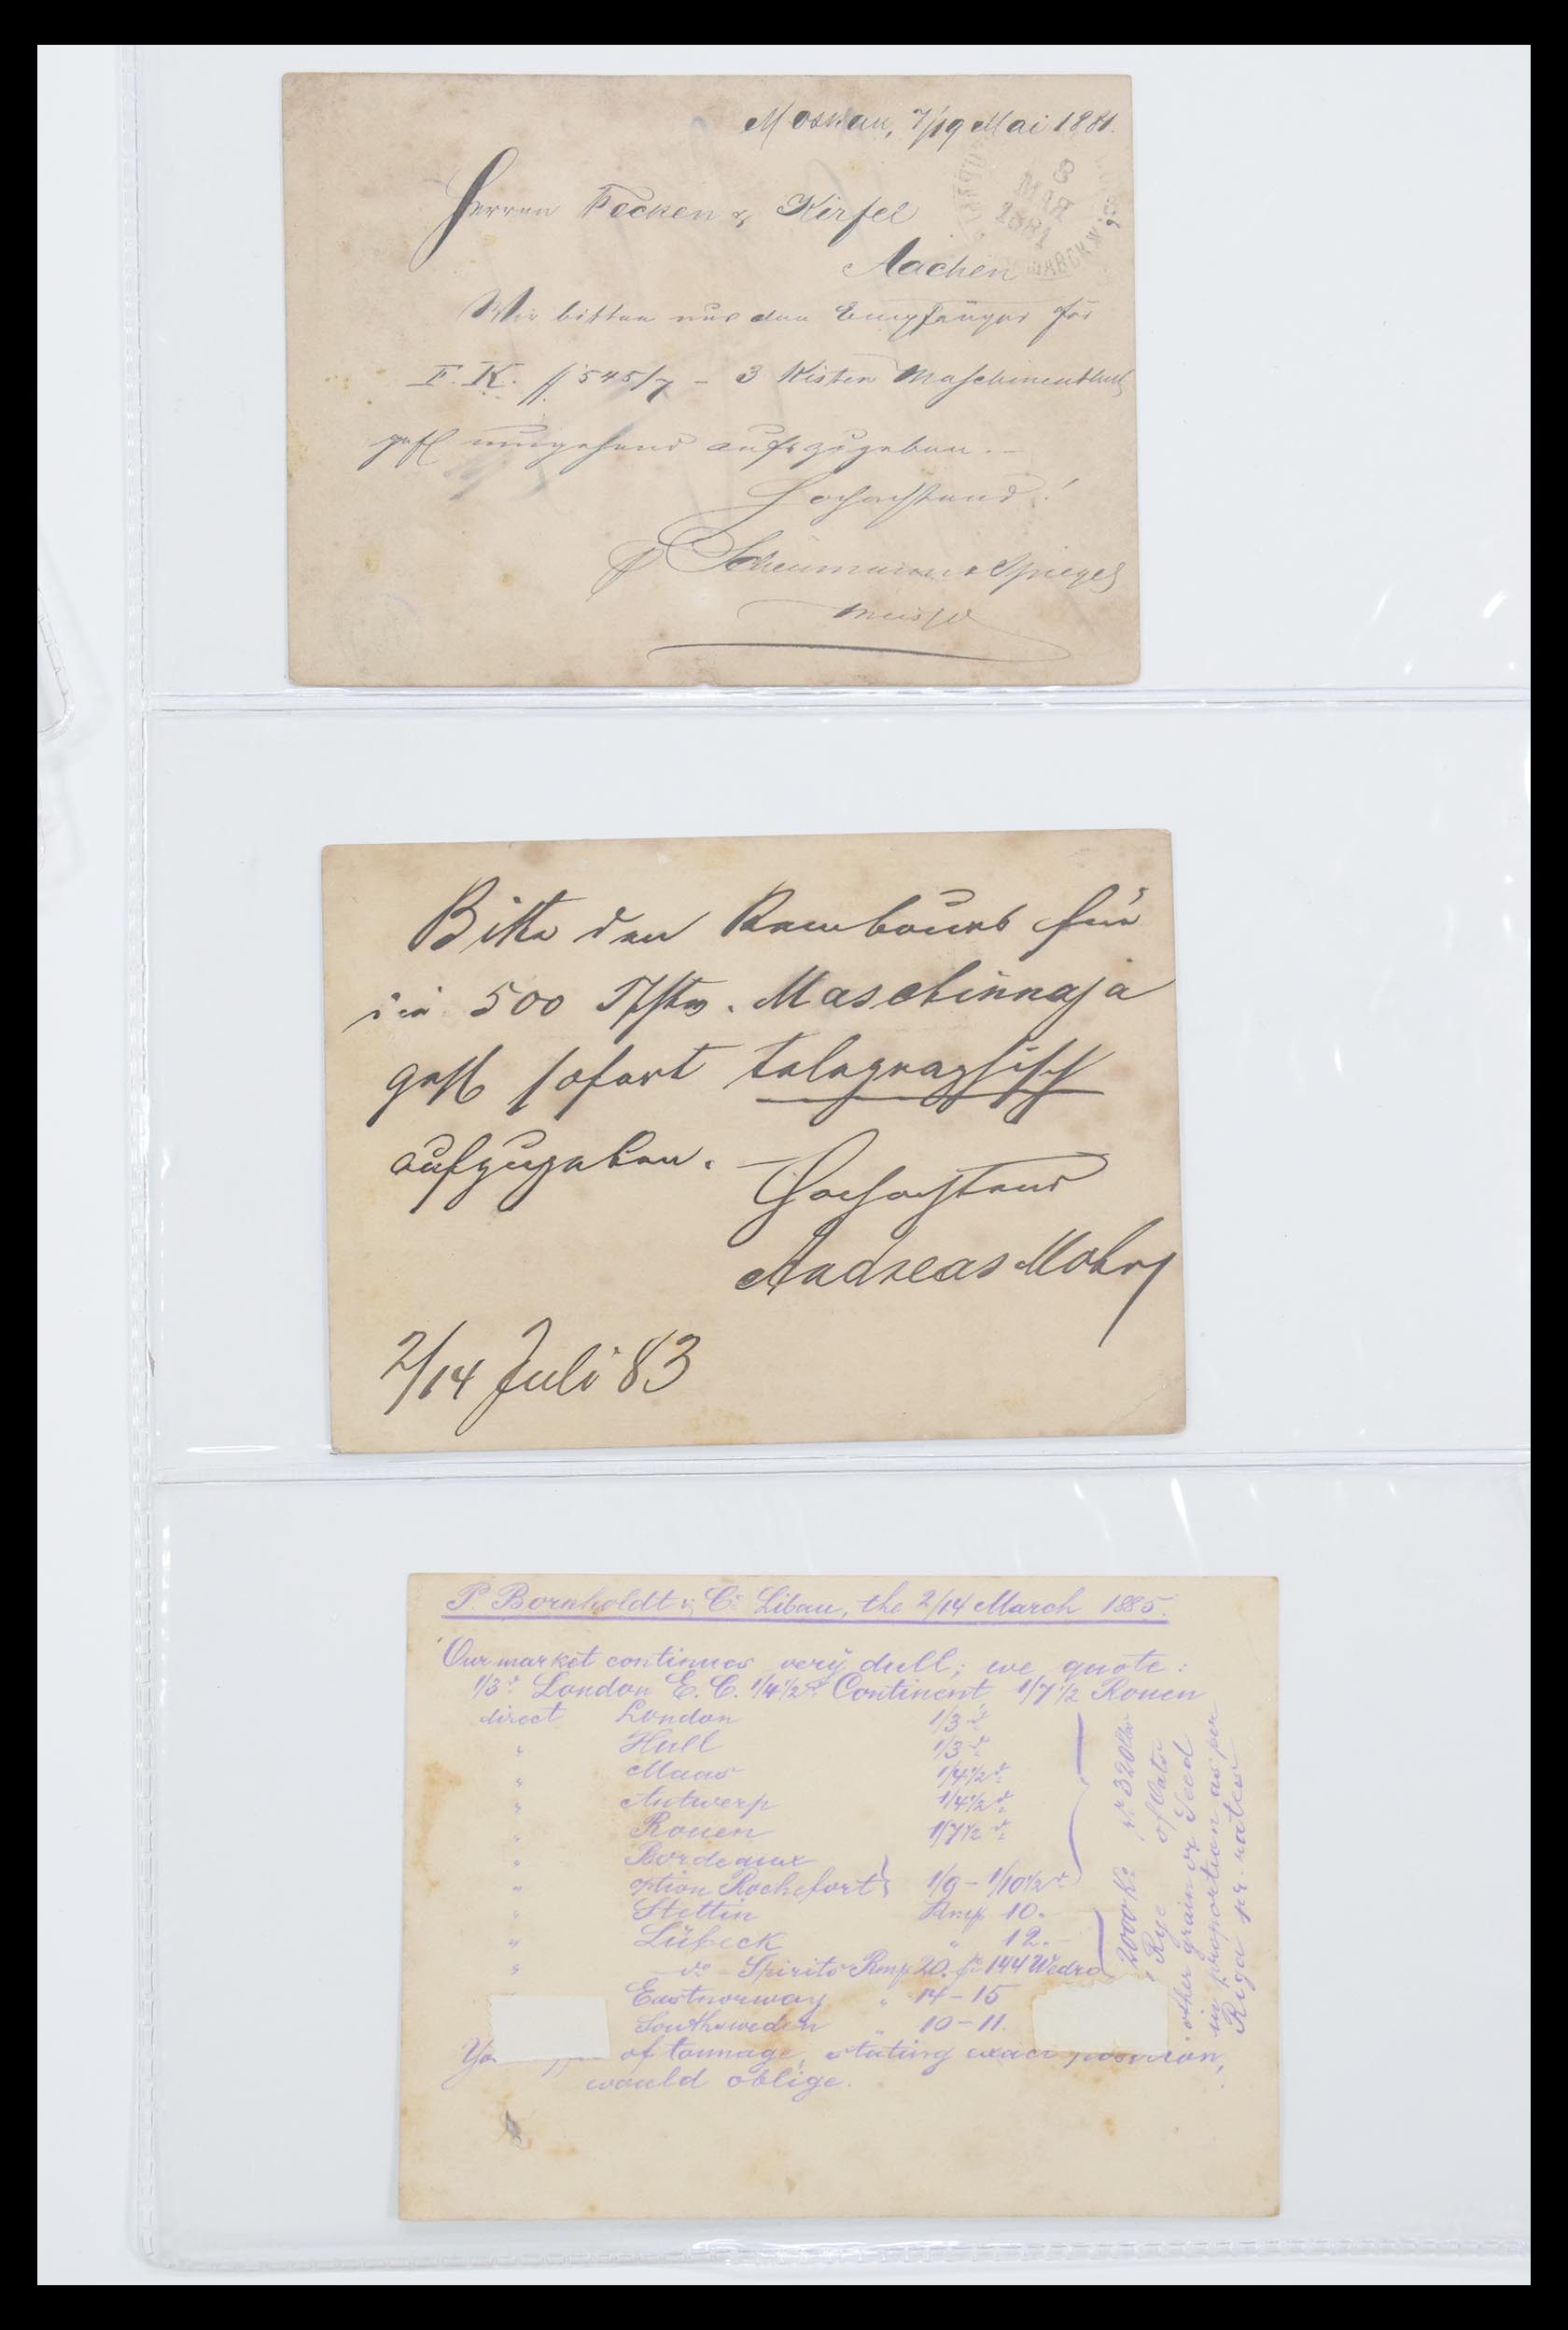 Moskau, 7/19 Mai 1881.
8
МАЯ
1881
Herren Fecken & Kirfel
Aachen
Wir bitten uns den Empfänger für
F. K. # 545/7 - 3 Kisten Maschinentheile
gefl umgehend aufzugeben. -
Hochachtend!
p Scheumann & Spiegel
Bitte den Rembours für
die 500 Tschtw. Maschinnaja
gefl sofort telegraphisch
aufzugeben. -
Hochachtend
Andreas Mohr
2/14 Juli 83
P. Bornholdt & Co Libau, the 2/14 March 1885.
Our market continues very dull; we quote:
1/3 d London E. C. 1/4 1/2 d Continent 1/7 1/2 Rouen
direct London 1/3 d
" Hull 1/3 d
" Maas 1/4 1/2 d
" Antwerp 1/4 1/2 d
" Rouen 1/7 1/2 d
" Bordeaux
" option Rochefort } 1/9 - 1/10 1/2 d
" Stettin Rmp 10.-
" Lübeck " 12.-
" - do - Spirits Rmp 20. pr 144 Wedro
Eastnorway " 14-15
Southsweden " 10-11.
of tonnage, stating exact position,
would oblige.
2000 Ko pr 320 lbs
Rye of Oats
other grain or Seed
in proportion as per
Riga pr. rates